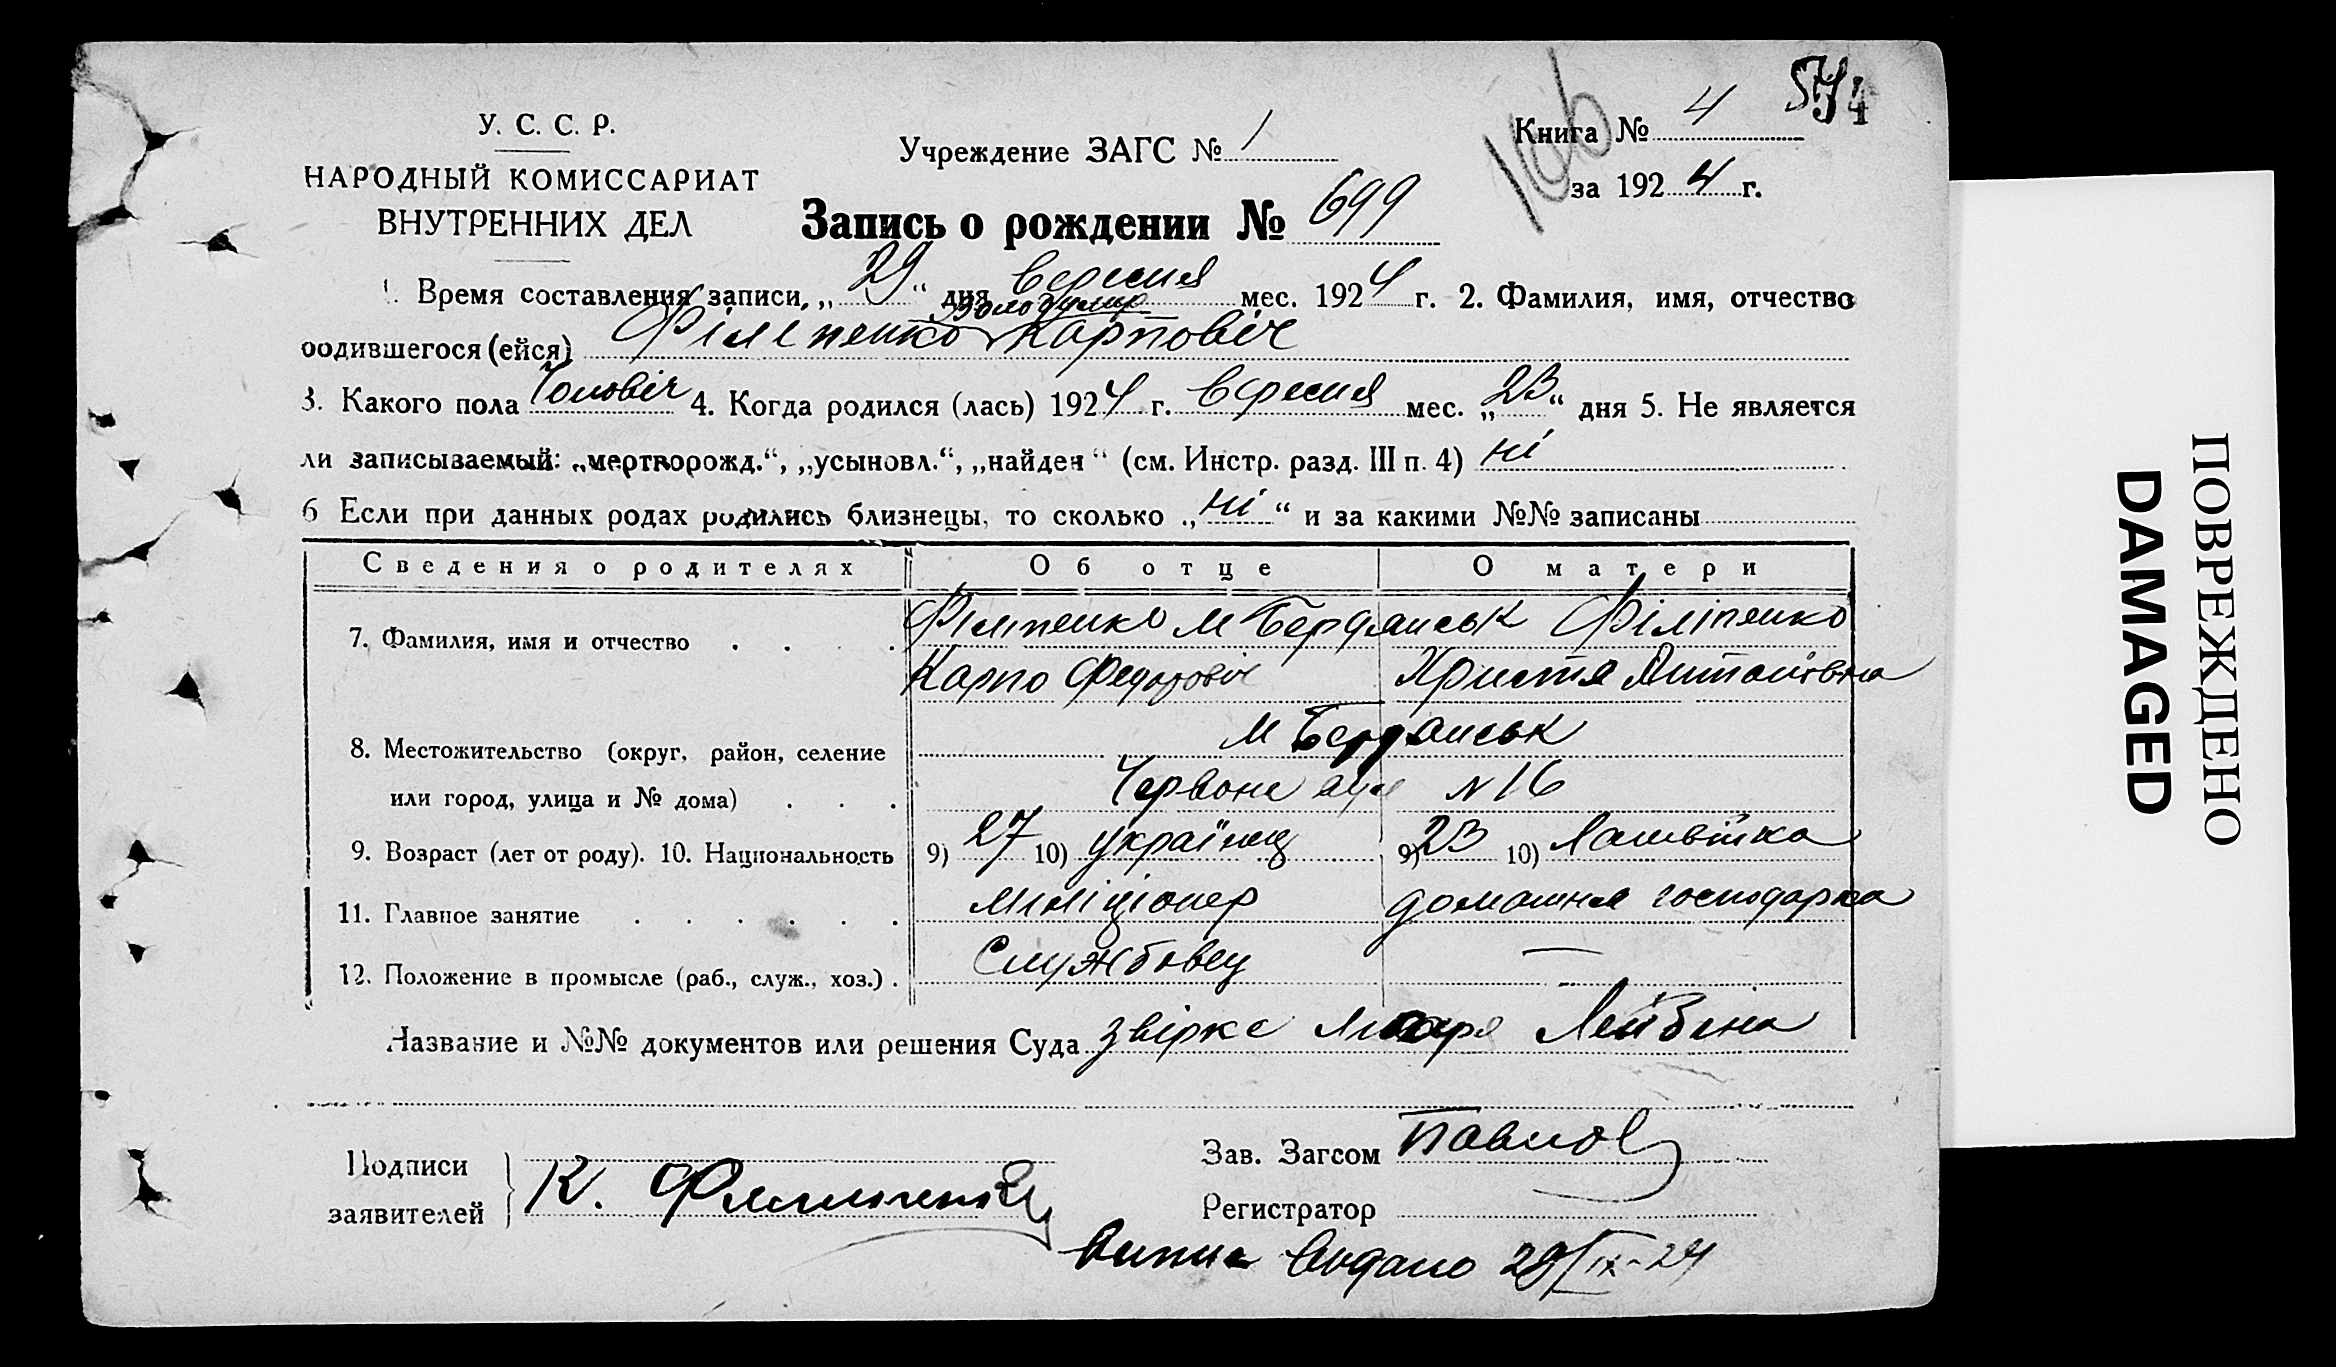 574
У. С. С. Р.
НАРОДНЫЙ КОМИССАРИАТ
ВНУТРЕННИХ ДЕЛ
Учреждение ЗАГС № 1
Книга № 4
за 1924 г.
Запись о рождении № 699
1. Время составления записи „29“ дня вересня мес. 1924 г. 2. Фамилия, имя, отчество
Володимир
родившегося (ейся) Філіпенко Карповіч
3. Какого пола Чоловіч 4. Когда родился (лась) 1924 г. вересня мес. „23“ дня 5. Не является
ли записываемый: „мертворожд.“, „усыновл.“, „найден“ (см. Инстр. разд. III п. 4) ні
6 Если при данных родах родились близнецы, то сколько „ні“ и за какими №№ записаны
Сведения о родителях Об отце О матери
7. Фамилия, имя и отчество Філіпенко м Бердянськ Філіпенко
Карпо Федоровіч Христя
8. Местожительство (округ, район, селение м Бердянськ
или город, улица и № дома) Червона вул N 16
9. Возраст (лет от роду). 10. Национальность 9) 27 10) українец 9) 23 10) Латвійка
11. Главное занятие міліціонер домашня господарка
12. Положение в промысле (раб., служ., хоз.) Службовец —
Название и №№ документов или решения Суда звірке Лікаря Лейбіна
Подписи
заявителей К. Филипенко
Зав. Загсом Павлов
Регистратор
Випис видано 29/IX-24
ПОВРЕЖДЕНО
DAMAGED